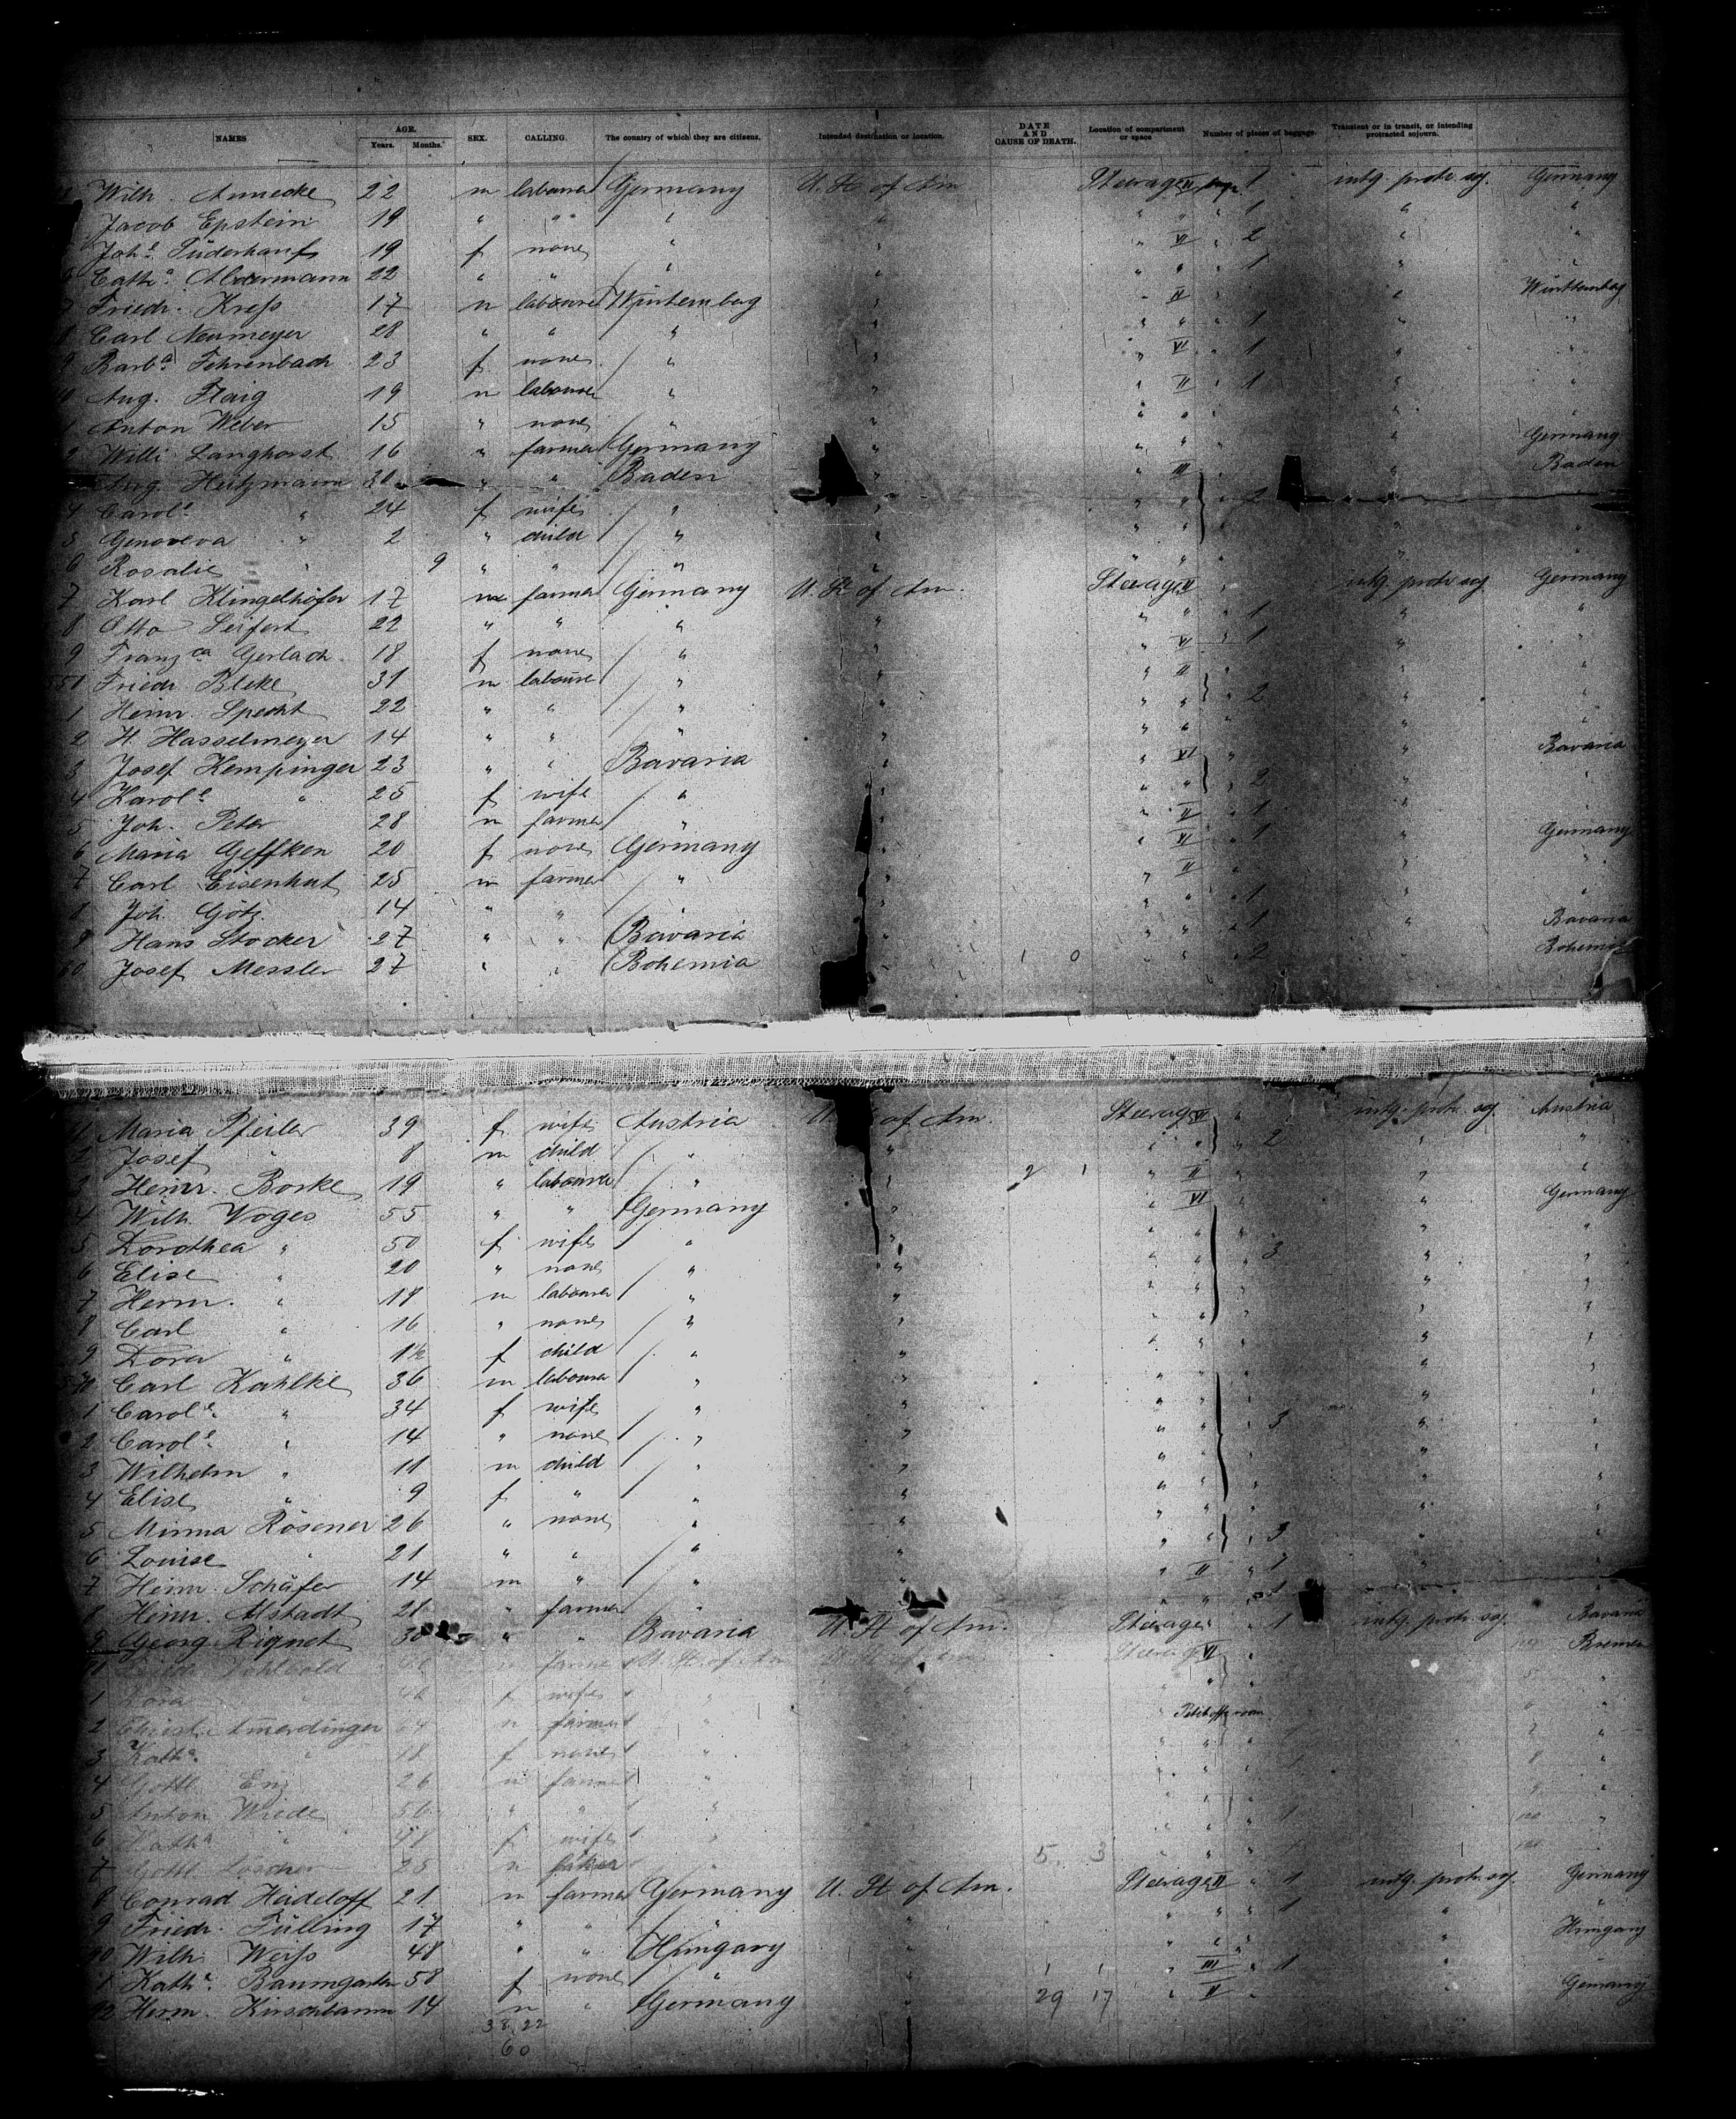 NAMES AGE. Years. Months. SEX. CALLING. The country of which they are citizens. Intended destination or location. DATE AND CAUSE OF DEATH. Location of compartment or space Number of pieces of baggage. Transient or in transit, or intending protracted sojourn.
Wilh. Annecke 22 m labourer Germany U. St. of Am. Steerage II 1 intg. protr. soj. Germany
Jacob Epstein 19 " " " " " " " 1 " "
Joh.e 19 f none " " " VI " 2 " "
Cath.a Aldermann 22 " " " " " " " 1 " "
7 Friedr. Kress 17 m labourer Würtemberg " " II " " Württemberg
8 Carl Neumeyer 28 " " " " " " " 1 " "
9 Barb.a Fehrenbach 23 f none " " " VI " 1 " "
Aug. Flaig 19 m labourer " " " II " 1 " "
1 Anton Weber 15 " none " " " " " "
2 Willi Langhorst 16 " farmer Germany " " " " " Germany
Heitzmann 30 " " Baden " " III " " Baden
4 Carol.e " 24 f wife " " " " " 2 "
5 Genoveva " 2 " child " " " " "
6 Rosalie " 9 " " " " " "
7 Karl Klingelhöfer 17 m farmer Germany U. St. of Am. Steerage II intg. protr. soj. Germany
8 Otto Seifert 22 " " " " " " " 1 " "
9 Franz.ca Gerlach 18 f none " " " VI " 1 " "
Friedr. Bleke 31 m labourer " " " II " " "
1 Heinr. Specht 22 " " " " " " " 2 " "
2 H. Hasselmeyer 14 " " " " " " " "
3 Josef Kempinger 23 " " Bavaria " " VI " " Bavaria
4 Karol.e " 25 f wife " " " " " 2 " "
5 Joh. Peter 28 m farmer " " " II " 1 " "
6 Maria Geffken 20 f none Germany " " VI " 1 " Germany
7 Carl Eisenhut 25 m farmer " " " II " " "
8 Joh. Götz 14 " " " " " " " 1 " "
9 Hans Stocker 27 " " Bavaria " " " " 1 " Bavaria
60 Josef Messler 27 " " Bohemia " 1 0 " " " 2 " Bohemia
1 Maria Pfeiler 39 f wife Austria U. of Am. Steerage VI " intg. protr. soj. Austria
2 Josef " 8 m child " " " " " 2 " "
3 Heinr. Borke 19 " labourer " " 2 1 " II " " "
4 Wilh. Voges 55 " " Germany " " VI " " Germany
5 Dorothea " 50 f wife " " " " " 3 " "
6 Elise " 20 " none " " " " " " "
7 Herm. " 18 m labourer " " " " " " "
8 Carl " 16 " none " " " " " " "
9 Dora " f child " " " " " " "
Carl Kahlke 36 m labourer " " " " " " "
1 Carol.e " 34 f wife " " " " " 3 " "
2 Carol.e " 14 " none " " " " " " "
3 Wilhelm " 11 m child " " " " " " "
4 Elise " 9 f " " " " " " " "
5 Minna Rösener 26 " none " " " " " " "
6 Louise " 21 " " " " " " " 3 " "
7 Heinr. Schäfer 14 m " " " " II " 1 " "
8 Heinr. Alstadt 21 " farmer " " " " " 1 " "
9 Georg Riquet 30 " " Bavaria U. St. of Am. Steerage " 1 intg. protr. soj. Bavaria
farmer U. St. of Am. U. St. of Am. Steerage VI Bremen
1 Dora f wife " " " " "
2 Christ. Amerdinger 64 m farmer " "
3 Kath.a " 18 f none " " " "
4 Gottl. Enz 26 m farmer " " " "
5 Anton Wiede 56 " " " " " 1 "
6 Kath.a " 48 f wife " " "
7 Gottl. 25 m 5 3 "
8 Conrad Heideloff 21 m farmer Germany U. St. of Am. Steerage II " 1 intg. protr. soj. Germany
9 Friedr. Fülling 17 " " " " " " " 1 " "
90 Wilh. Weiss 48 " " Hungary " " " " " Hungary
1 Kath.a Baumgarten 58 f none " " 1 1 " III " 1 " "
92 Herm. Kirschbaum 14 m " Germany " 29 17 " II " Germany
38 22
60